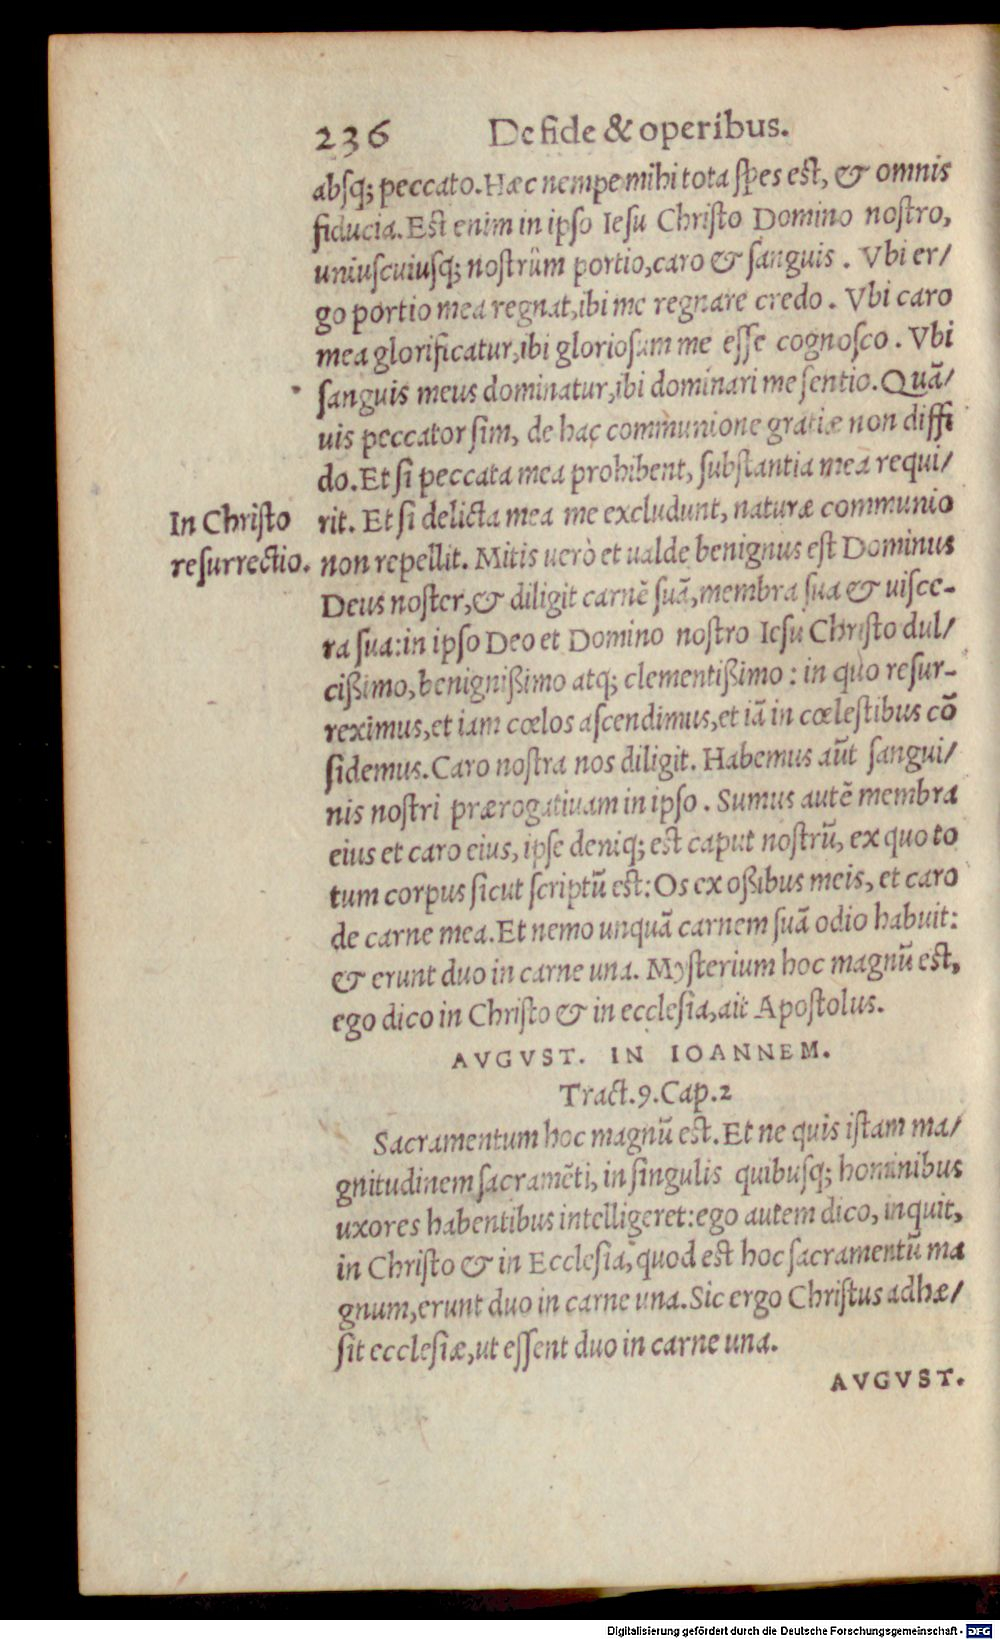 236 De fide & operibus.
absq; peccato. Hæc nempe mihi tota spes est, & omnis
fiducia. Est enim in ipso Iesu Christo Domino nostro,
uniuscuiusq; nostrûm portio, caro & sanguis. Vbi er/
go portio mea regnat, ibi me regnare credo. Vbi caro
mea glorificatur, ibi gloriosum me esse cognosco. Vbi
sanguis meus dominatur, ibi dominari me sentio. Quã/
uis peccator sim, de hac communione gratiæ non diffi
do. Et si peccata mea prohibent, substantia mea requi/
In Christo
resurrectio.
rit. Et si delicta mea me excludunt, naturæ communio
non repellit. Mitis uerò et ualde benignus est Dominus
Deus noster, & diligit carnẽ suã, membra sua & uisce-
ra sua: in ipso Deo et Domino nostro Iesu Christo dul/
cißimo, benignißimo atq; clementißimo: in quo resur-
reximus, et iam cœlos ascendimus, et iã in cœlestibus cõ
sidemus. Caro nostra nos diligit. Habemus aũt sangui/
nis nostri prærogatiuam in ipso. Sumus autẽ membra
eius et caro eius, ipse deniq; est caput nostrũ, ex quo to
tum corpus sicut scriptũ est: Os ex oßibus meis, et caro
de carne mea. Et nemo unquã carnem suã odio habuit:
& erunt duo in carne una. Mysterium hoc magnũ est,
ego dico in Christo & in ecclesia, ait Apostolus.
AVGVST. IN IOANNEM.
Tract. 9. Cap. 2
Sacramentum hoc magnũ est. Et ne quis istam ma/
gnitudinem sacramẽti, in singulis quibusq; hominibus
uxores habentibus intelligeret: ego autem dico, inquit,
in Christo & in Ecclesia, quod est hoc sacramentũ ma
gnum, erunt duo in carne una. Sic ergo Christus adhæ/
sit ecclesiæ, ut essent duo in carne una.
AVGVST.
Digitalisierung gefördert durch die Deutsche Forschungsgemeinschaft - DFG